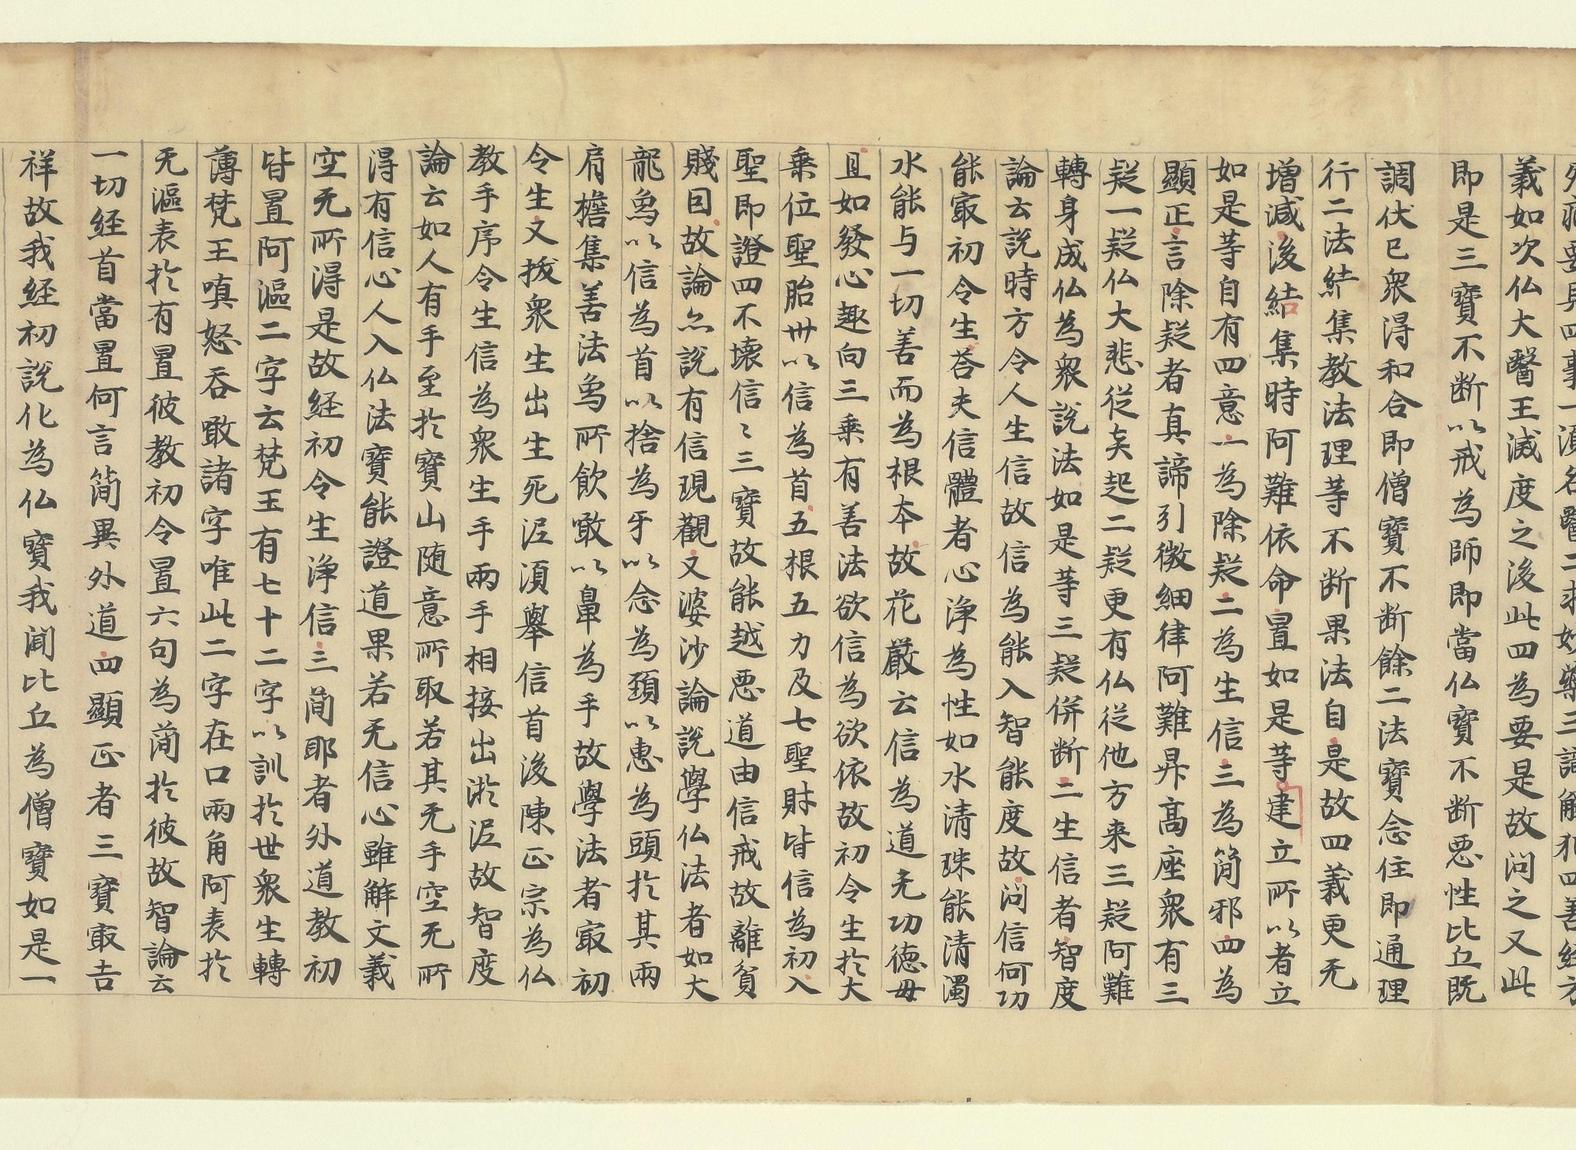 義如次仏大醫王滅度之後此四為要是故问之又此
即是三寶不断以戒為師即當仏寶不断悪性比丘既
調伏已衆得和合即僧寶不断餘二法寶念住即通理
行二法結集教法理等不断果法自是故四義更无
增減後結集時阿難依命置如是等建立所以者立
如是等自有四意一為除疑二為生信三為簡邪四為
顯正言除疑者真諦引微細律阿難昇高座衆有三
疑一疑仏大悲從㚑起二疑更有仏從他方来三疑阿難
轉身成仏為衆說法如是等三疑併断二生信者智度
論云說時方令人生信故信為能入智能度故问信何功
能冣初令生荅夫信體者心淨為性如水清珠能清濁
水能与一切善而為根本故花嚴云信為道无功德毋
且如發心趣向三乗有善法欲信為欲依故初令生於大
乗位聖胎卅以信為首五根五力及七聖財皆信為初入
聖即證四不壞信〻三寶故能越悪道由信戒故離貧
賤因故論亦說有信現觀又婆沙論說學仏法者如大
龍象以信為首以捨為牙以念為頚以恵為頭於其兩
肩檐集善法象所飲噉以鼻為手故學法者冣初
令生又拔衆生出生死泥湏舉信首後陳正宗為仏
教手序令生信為衆生手兩手相接出淤泥故智度
論云如人有手至於寶山随意所取若其无手空无所
得有信心人入仏法寶能證道果若无信心雖解文義
空无所得是故経初令生淨信三簡耶者外道教初
皆置阿漚二字云梵王有七十二字以訓於世衆生轉
薄梵王嗔怒吞噉諸字唯此二字在口兩角阿表於
无漚表於有置彼教初令置六句為蕳於彼故智論云
一切経首當置何言簡異外道四顯正者三寶冣吉
祥故我経初說化為仏寶我聞比丘為僧寶如是一